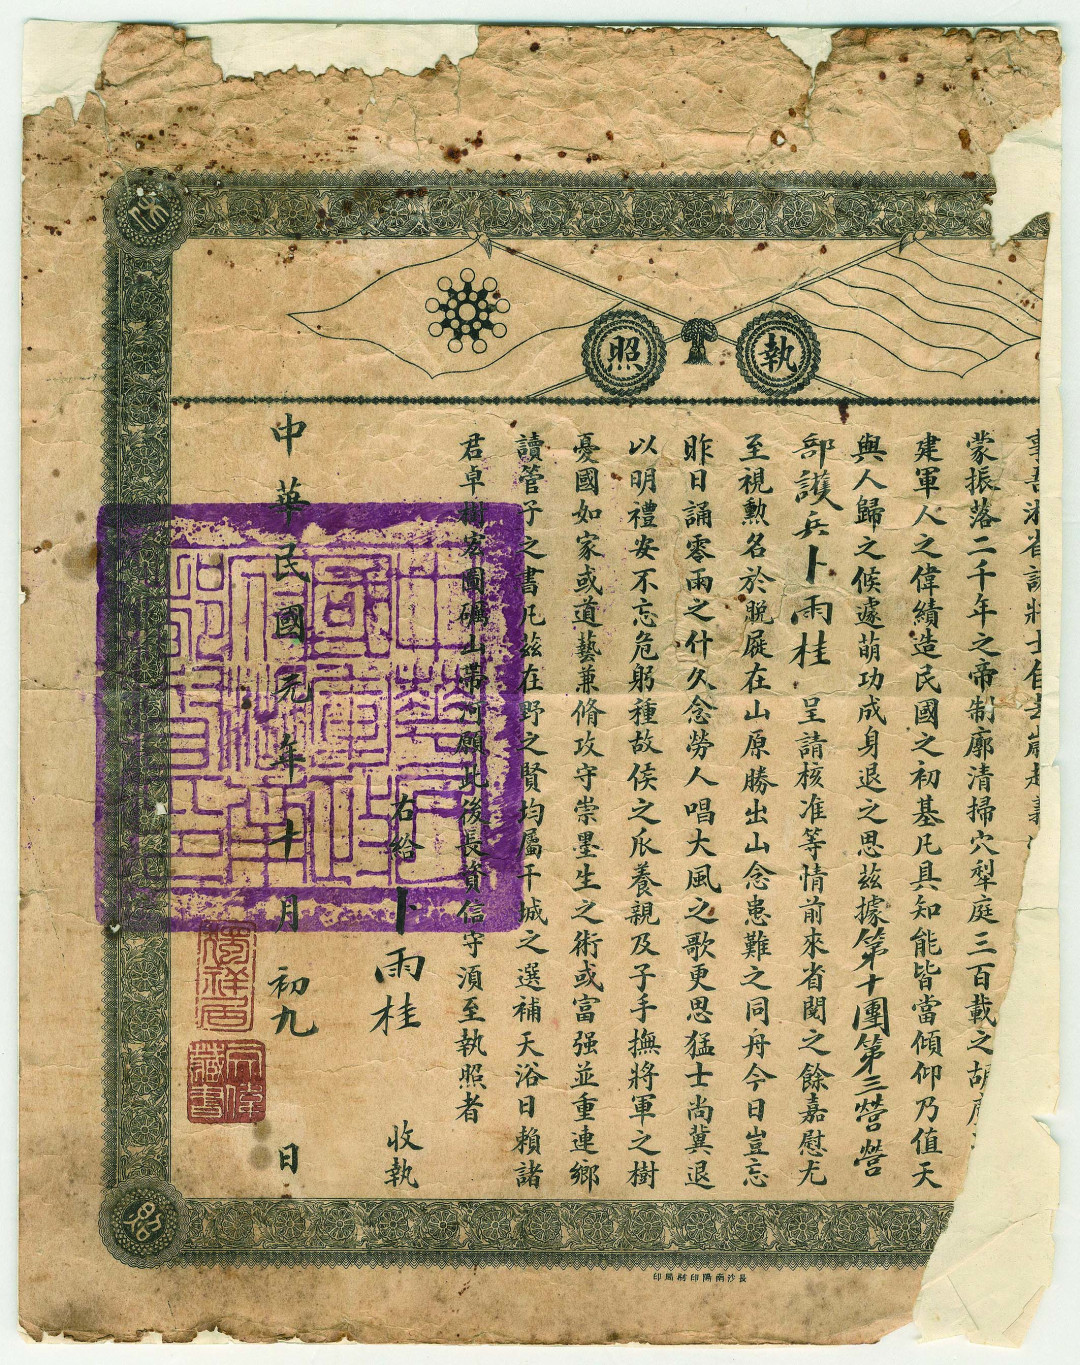 執照
蒙振落二千年之帝制廓清掃穴犁庭三百載之胡
建軍人之偉績造民國之初基凡具知能皆當傾仰乃值天
與人歸之候遽萌功成身退之思茲據第十團第三營營
部護兵卜雨桂呈請核准等情前來省閱之餘嘉慰尤
至視勲名於脫屣在山原勝出山念患難之同舟今日豈忘
昨日誦零雨之什久念勞人唱大風之歌更思猛士尚冀退
以明禮安不忘危躬種故侯之瓜養親及子手撫將軍之樹
憂國如家或道藝兼脩攻守崇墨生之術或富强並重連鄉
讀管子之書凡茲在野之賢均屬干城之選補天浴日賴諸
君卓樹宏圖礪山帶河願此後長資信守須至執照者
右給卜雨桂收執
中華民國元年十月初九日
長沙南陽印刷局印